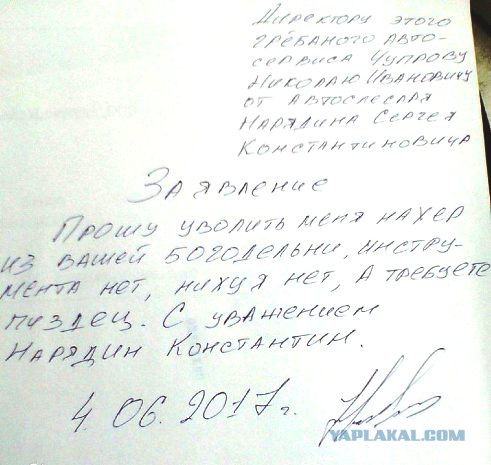 Директору этого
грёбаного авто-
сервиса Чупрову
Николаю Ивановичу
от автослесаря
Нарядина Сергея
Константиновича
Заявление
Прошу уволить меня нахер
из вашей богодельни, инстру-
мента нет, нихуя нет, а требуете
пиздец. С уважением
Нарядин Константин.
4.06.2017г.
YAPLAKAL.COM